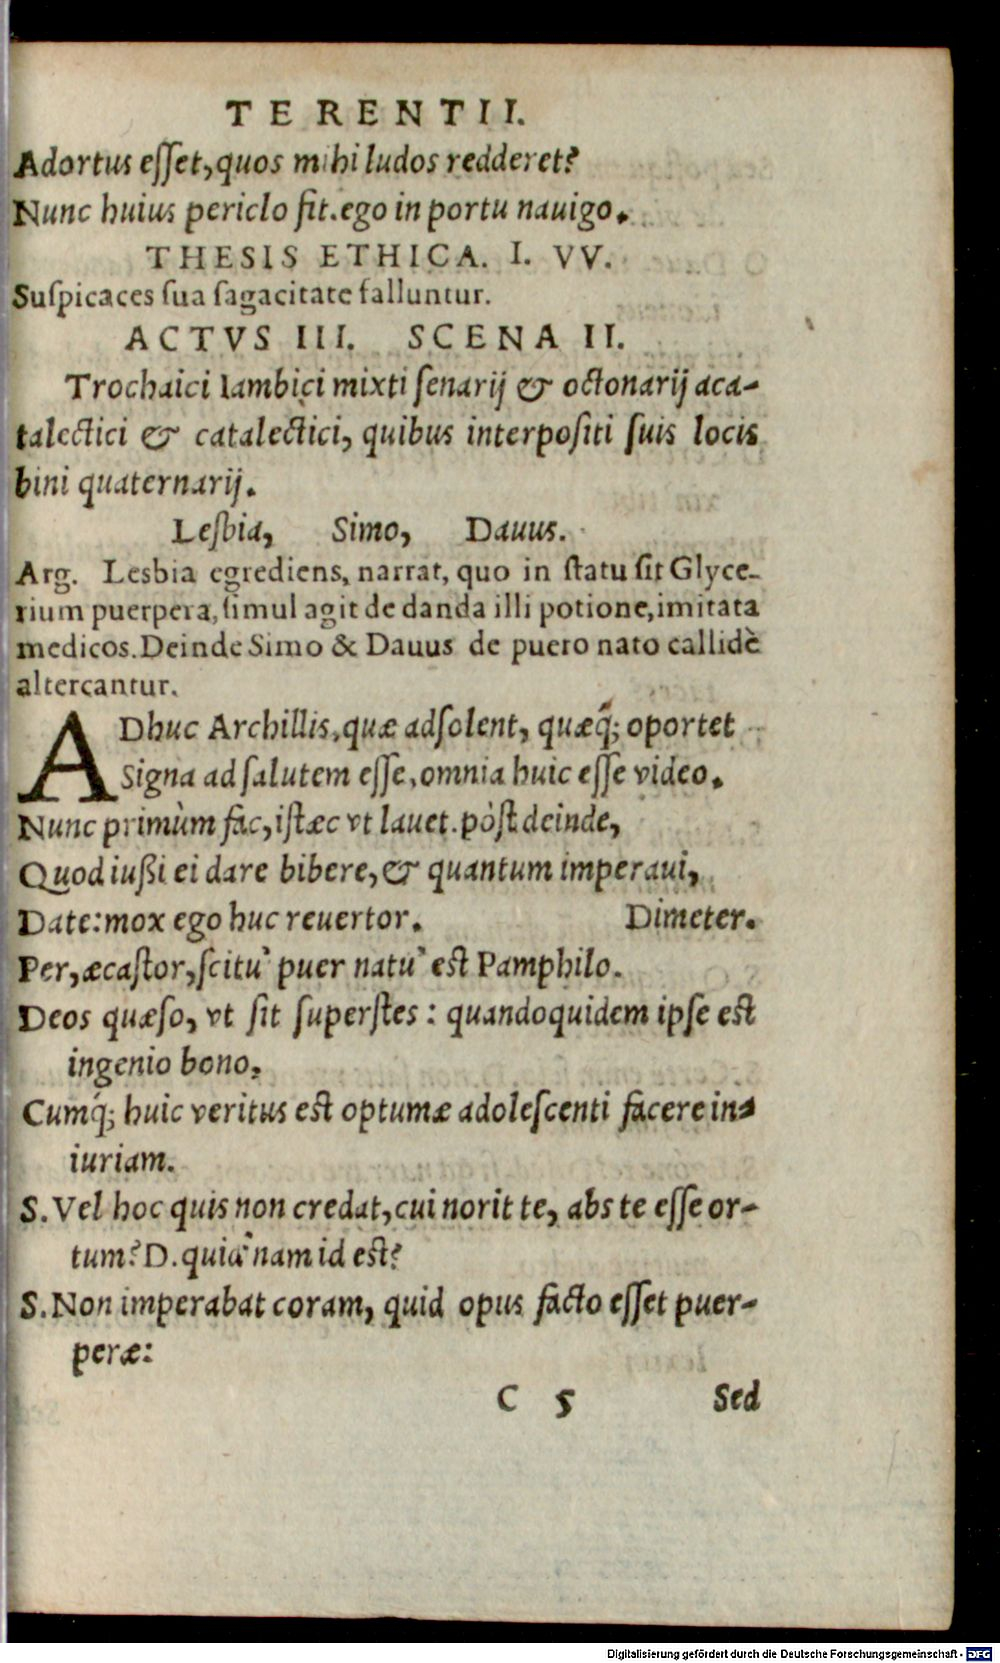 TERENTII.
Adortus eſſet, quos mihi ludos redderet?
Nunc huius periclo fit. ego in portu nauigo.
THESIS ETHICA. I. VV.
Suſpicaces ſua ſagacitate falluntur.
ACTVS III. SCENA II.
Trochaici Iambici mixti ſenarij & octonarij aca-
talectici & catalectici, quibus interpoſiti ſuis locis
bini quaternarij.
Leſbia, Simo, Dauus.
Arg. Lesbia egrediens, narrat, quo in ſtatu ſit Glyce-
rium puerpera, ſimul agit de danda illi potione, imitata
medicos. Deinde Simo & Dauus de puero nato callidè
altercantur.
ADhuc Archillis, quæ adſolent, quæq́; oportet
Signa ad ſalutem eſſe, omnia huic eſſe video.
Nunc primùm fac, iſtæc vt lauet. pòſt deinde,
Quod iußi ei dare bibere, & quantum imperaui,
Date: mox ego huc reuertor. Dimeter.
Per, æcaſtor, ſcitu' puer natu' eſt Pamphilo.
Deos quæſo, vt ſit ſuperſtes: quandoquidem ipſe eſt
ingenio bono.
Cumq́; huic veritus eſt optumæ adoleſcenti facere in-
iuriam.
S. Vel hoc quis non credat, cui norit te, abs te eſſe or-
tum? D. quia'nam id eſt?
S. Non imperabat coram, quid opus facto eſſet puer-
peræ:
C 5 Sed
Digitalisierung gefördert durch die Deutsche Forschungsgemeinschaft - DFG